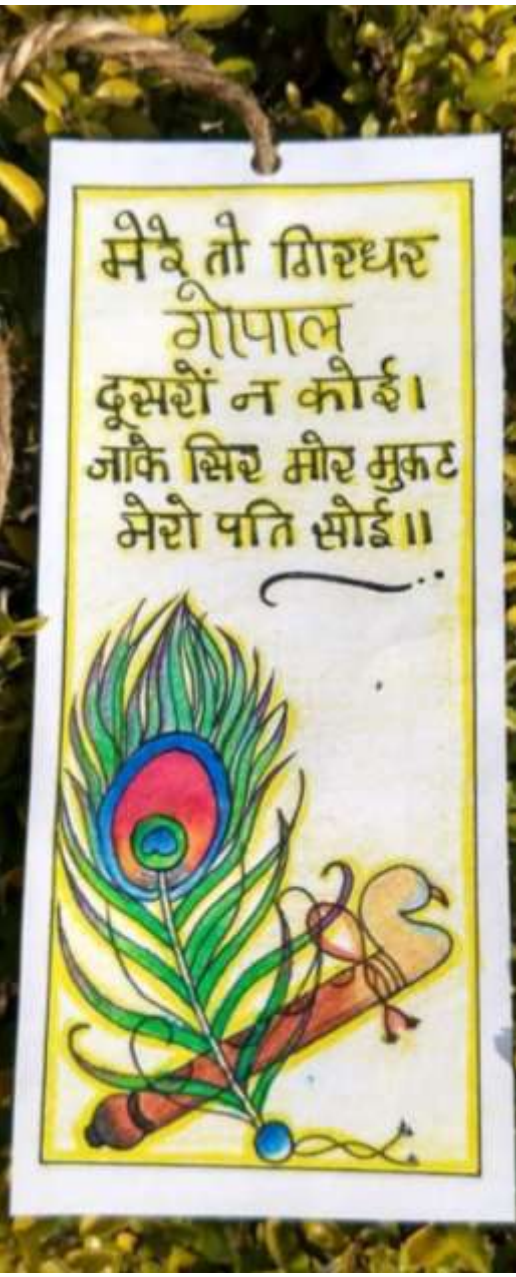 मेरे तो गिरधर
गोपाल
दूसरों न कोई।
जाके सिर मोर मुकट
मेरो पति सोई॥